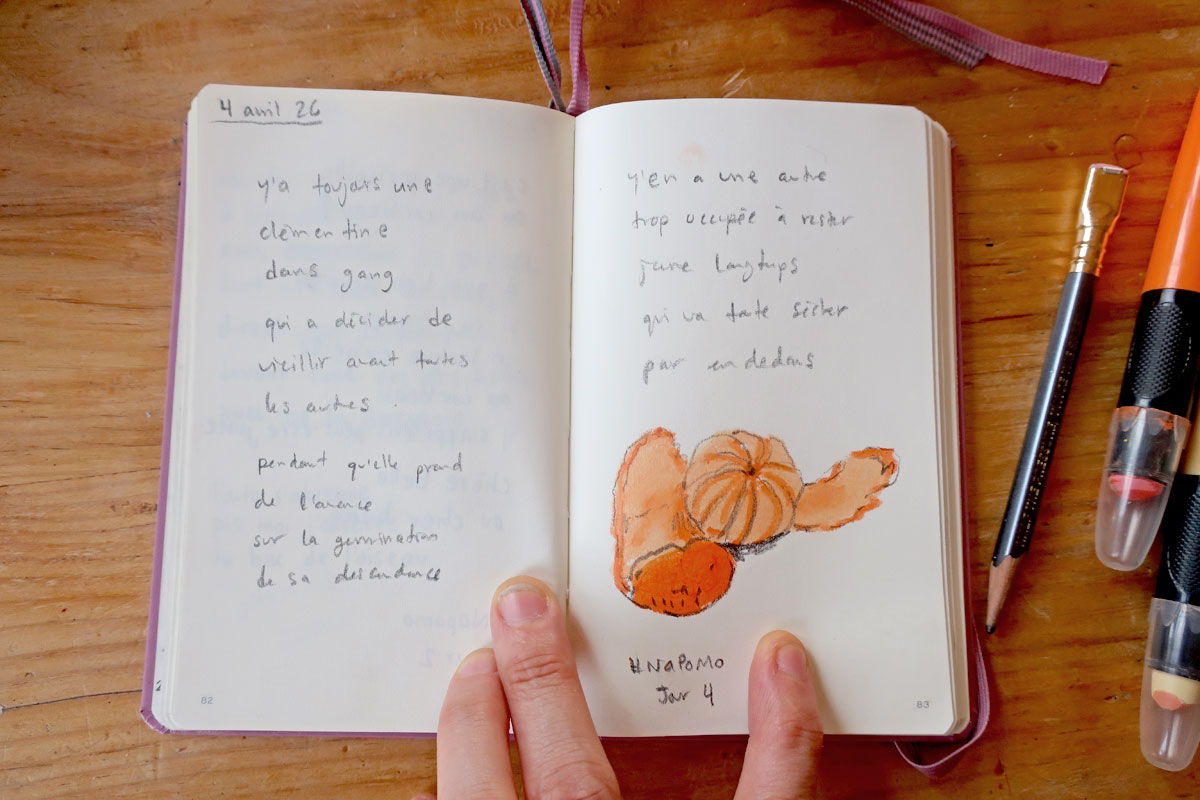 4 avril 26
y'a toujours une
clémentine
dans gang
qui a décider de
vieillir avant toutes
les autres.
pendant qu'elle prend
de l'avance
sur la germination
de sa descendance
82
y'en a une autre
trop occupée à rester
jeune longtemps
qui va toute sécher
par en dedans
#NaPoMo
Jour 4
83